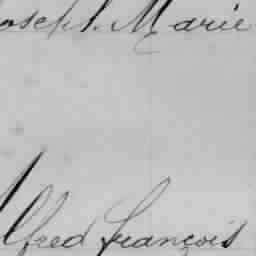 Joseph Marie
Alfred françois